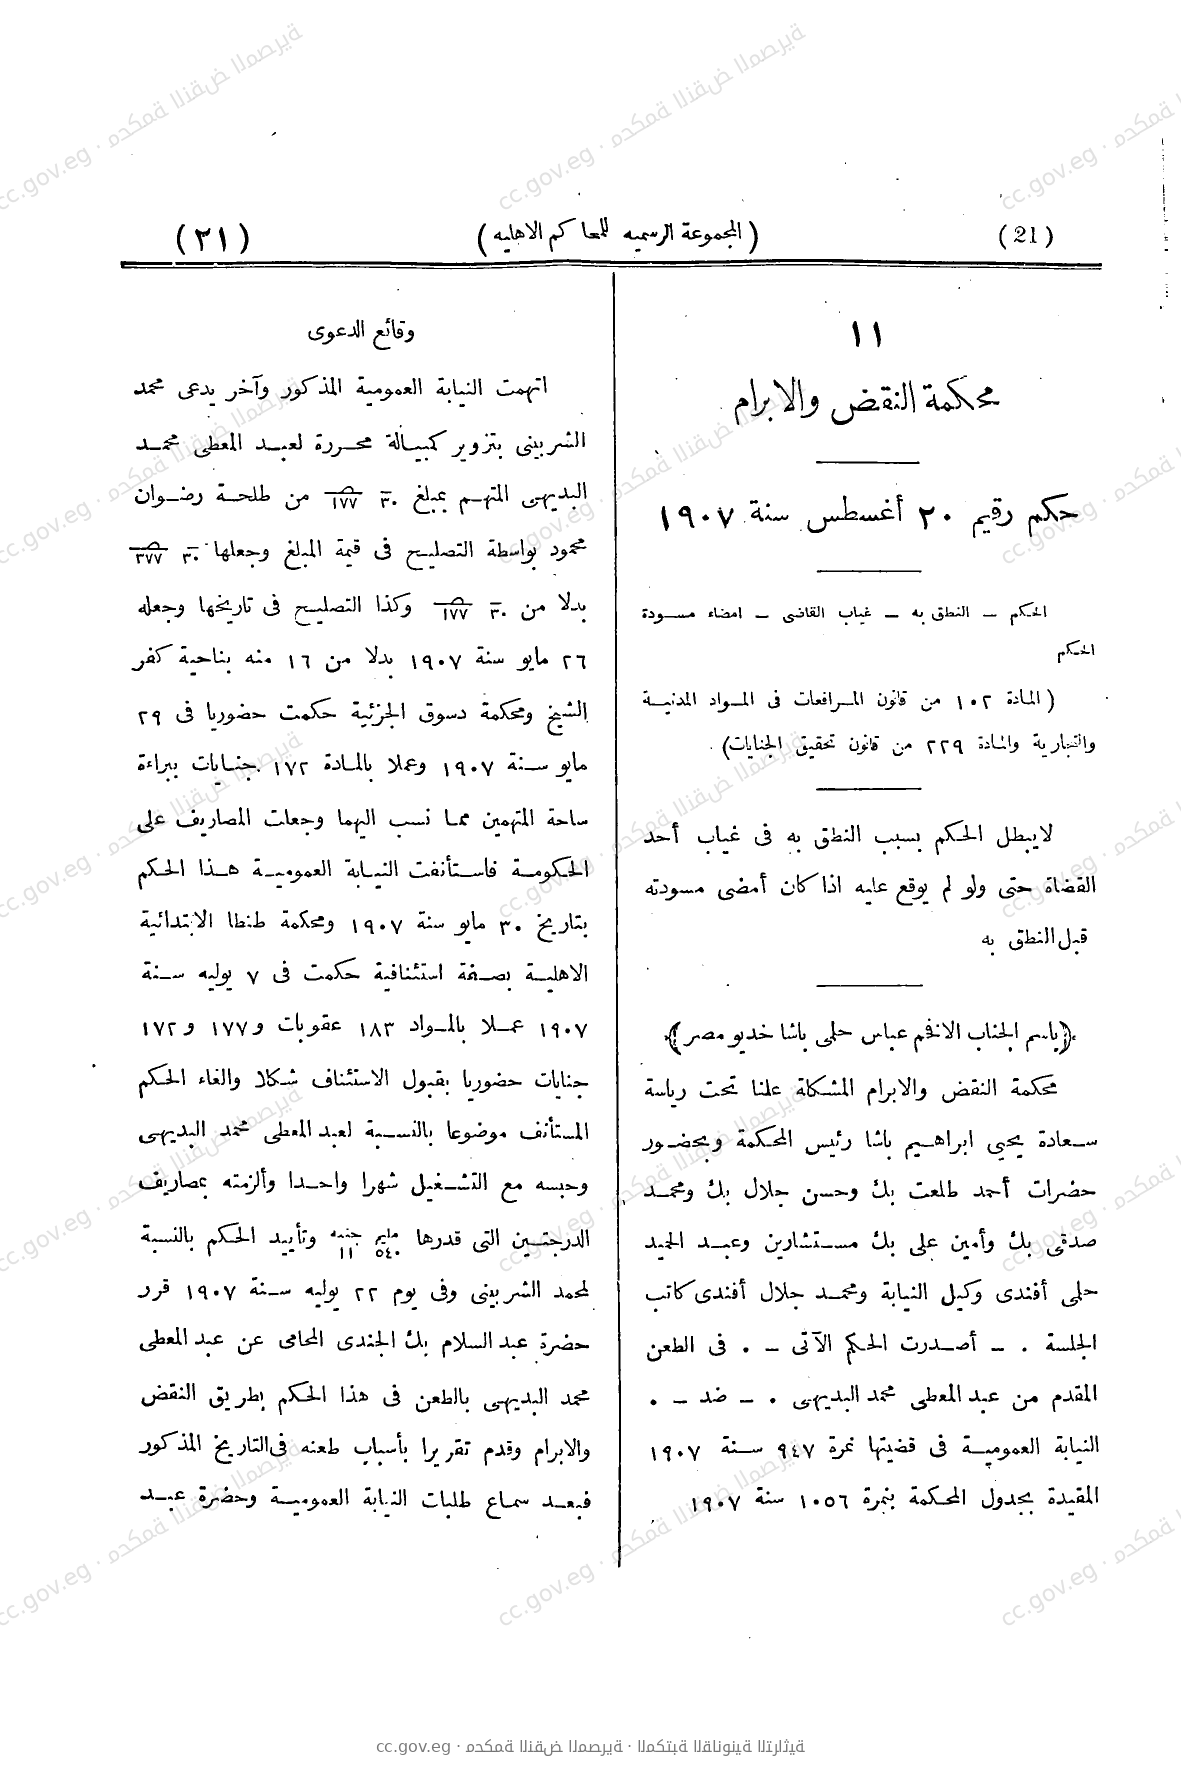 (21)
(المجموعة الرسميه للمحاكم الاهليه)
(٢١)
١١
محكمة النقض والابرام
حكم رقيم ٢٠ أغسطس سنة ١٩٠٧
الحكم – النطق به – غياب القاضى – امضاء مسودة
الحكم
(المادة ١٠٢ من قانون المرافعات فى المواد المدنية
والتجارية والمادة ٢٢٩ من قانون تحقيق الجنايات)
لايبطل الحكم بسبب النطق به فى غياب أحد
القضاة حتى ولو لم يوقع عليه اذا كان أمضى مسودته
قبل النطق به
(باسم الجناب الافخم عباس حلمى باشا خديو مصر)
محكمة النقض والابرام المشكلة علنا تحت رياسة
سعادة يحيى ابراهيم باشا رئيس المحكمة وبحضور
حضرات أحمد طلعت بك وحسن جلال بك ومحمد
صدقى بك وأمين على بك مستشارين وعبد الحميد
حلمى أفندى وكيل النيابة ومحمد جلال أفندى كاتب
الجلسة . – أصدرت الحكم الآتى – . فى الطعن
المقدم من عبد المعطى محمد البديهى . – ضد – .
النيابة العمومية فى قضيتها نمرة ٩٤٧ سنة ١٩٠٧
المقيدة بجدول المحكمة بنمرة ١٠٥٦ سنة ١٩٠٧
وقائع الدعوى
اتهمت النيابة العمومية المذكور وآخر يدعى محمد
الشربينى بتزوير كمبيالة محررة لعبد المعطى محمد
البديهى المتهم بمبلغ ٣٠ ١٧٧ من طلحة رضوان
محمود بواسطة التصليح فى قيمة المبلغ وجعلها ٣٠ ٣٧٧
بدلا من ٣٠ ١٧٧ وكذا التصليح فى تاريخها وجعله
٢٦ مايو سنة ١٩٠٧ بدلا من ١٦ منه بناحية كفر
الشيخ ومحكمة دسوق الجزئية حكمت حضوريا فى ٢٩
مايو سنة ١٩٠٧ وعملا بالمادة ١٧٢ جنايات ببراءة
ساحة المتهمين مما نسب اليهما وجعلت المصاريف على
الحكومة فاستأنفت النيابة العمومية هذا الحكم
بتاريخ ٣٠ مايو سنة ١٩٠٧ ومحكمة طنطا الابتدائية
الاهلية بصفة استئنافية حكمت فى ٧ يوليه سنة
١٩٠٧ عملا بالمواد ١٨٣ عقوبات و١٧٧ و١٧٢
جنايات حضوريا بقبول الاستئناف شكلا والغاء الحكم
المستأنف موضوعا بالنسبة لعبد المعطى محمد البديهى
وحبسه مع التشغيل شهرا واحدا وألزمته بمصاريف
الدرجتين التى قدرها مليم ٥٤٠ جنيه ١١ وتأييد الحكم بالنسبة
لمحمد الشربينى وفى يوم ٢٢ يوليه سنة ١٩٠٧ قرر
حضرة عبد السلام بك الجندى المحامى عن عبد المعطى
محمد البديهى بالطعن فى هذا الحكم بطريق النقض
والابرام وقدم تقريرا بأسباب طعنه فى التاريخ المذكور
فبعد سماع طلبات النيابة العمومية وحضرة عبد
cc.gov.eg · محكمة النقض المصرية · المكتبة القانونية التراثية